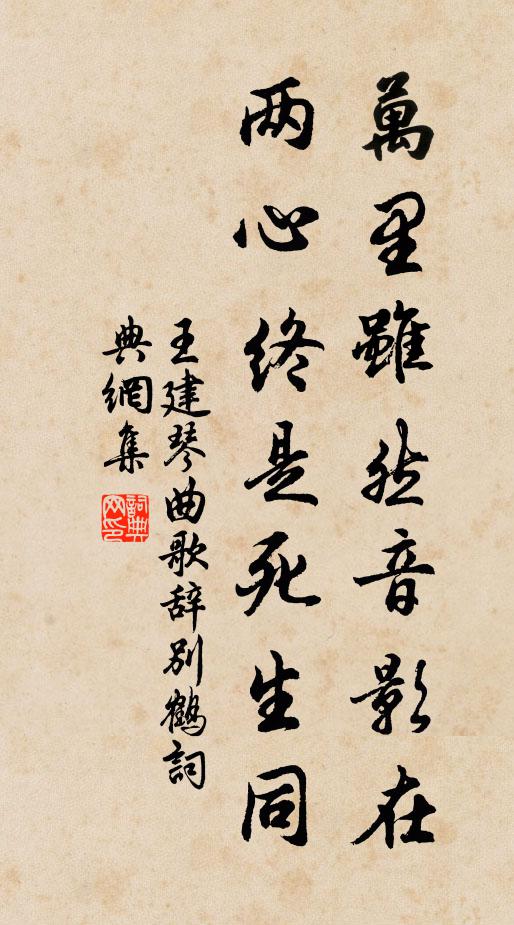 萬里雖然音影在
兩心終是死生同
王建琴曲歌辞別鶴詞
典網集
詞典网印